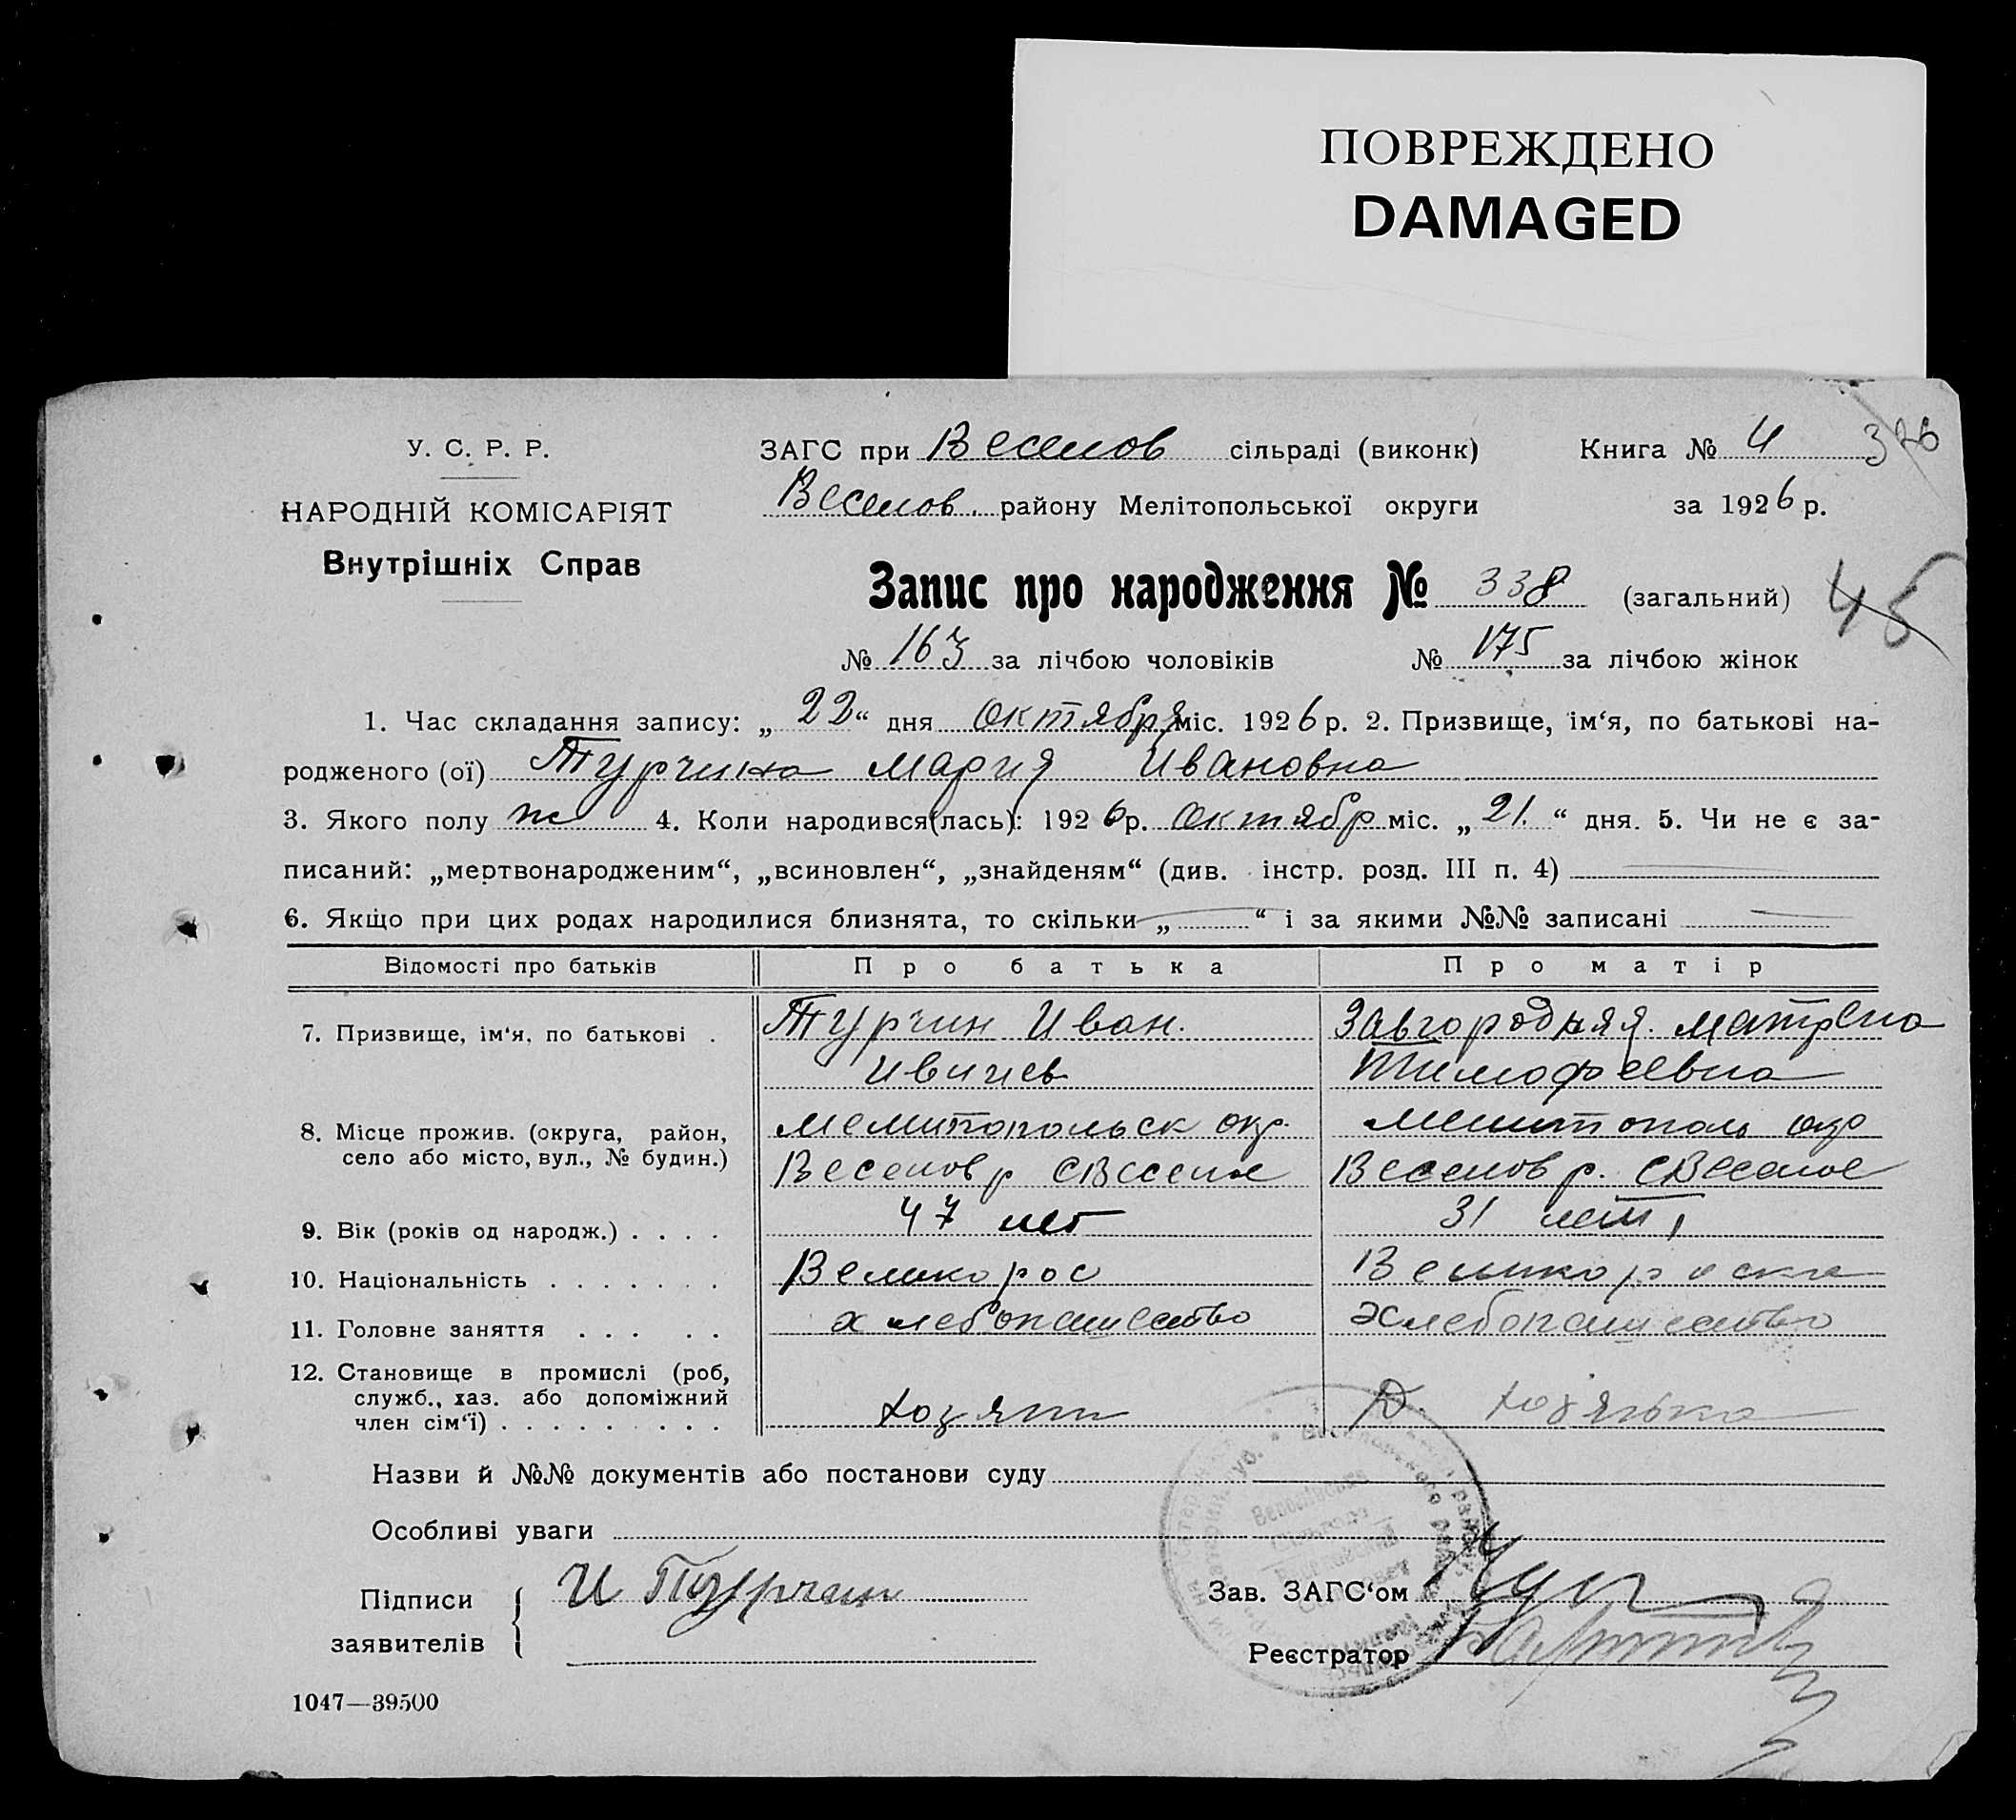 ПОВРЕЖДЕНО
DAMAGED
У. С. Р. Р.
НАРОДНІЙ КОМІСАРІЯТ
Внутрішніх Справ
ЗАГС при Веселов сільраді (виконк)
Веселов. району Мелітопольської округи
Книга № 4
326
за 1926 р.
Запис про народження № 338 (загальний)
45
№ 163 за лічбою чоловіків № 175 за лічбою жінок
1. Час складання запису: „22“ дня Октября міс. 1926 р. 2. Призвище, ім‘я, по батькові на-
родженого (ої) Турчина Мария Ивановна
3. Якого полу ж 4. Коли народився(лась): 1926 р. Октябр міс. „21.“ дня. 5. Чи не є за-
писаний: „мертвонародженим“, „всиновлен“, „знайденям“ (див. інстр. розд. III п. 4)
6. Якщо при цих родах народилися близнята, то скільки „ “ і за якими №№ записані
Відомості про батьків Про батька Про матір
7. Призвище, ім‘я, по батькові . Турчин Иван. Завгородняя. Матрена
Тимофеевна
8. Місце прожив. (округа, район, Мелитопольск окр. Мелитополь окр
село або місто, вул., № будин.) Веселов р с Веселое Веселов р. с Веселое
9. Вік (років од народж.) . . . . 47 лет 31 лет
10. Національність . . . . . . . Великорос Великороска
11. Головне заняття . . . . . хлебопашество хлебопашество
12. Становище в промислі (роб,
служб., хаз. або допоміжний
член сім‘ї) . . . . . . . . . хозяин Д. хозяйка
Назви й №№ документів або постанови суду
Особливі уваги
Підписи
заявителів
И Турчин
Зав. ЗАГС‘ом
Реєстратор
1047—39500